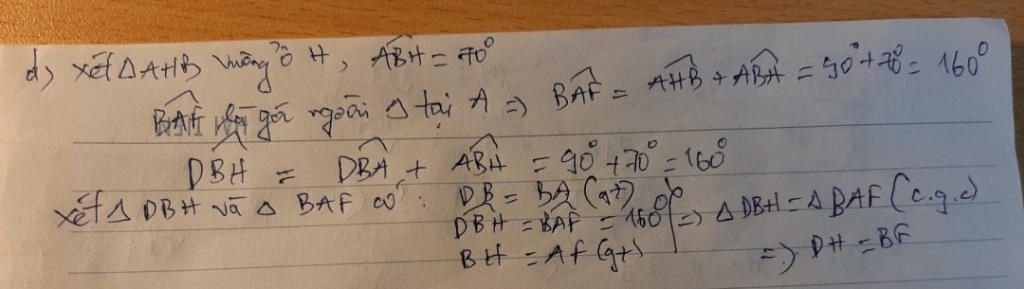 d) Xét ΔAHB vuông ở H, ABH = 70°
BAF là góc ngoài Δ tại A => BAF = AHB + ABH = 90° + 70° = 160°
DBH = DBA + ABH = 90° + 70° = 160°
Xét Δ DBH và Δ BAF có: DB = BA (gt)
DBH = BAF = 160° => Δ DBH = Δ BAF (c.g.c)
BH = AF (gt) => DH = BF